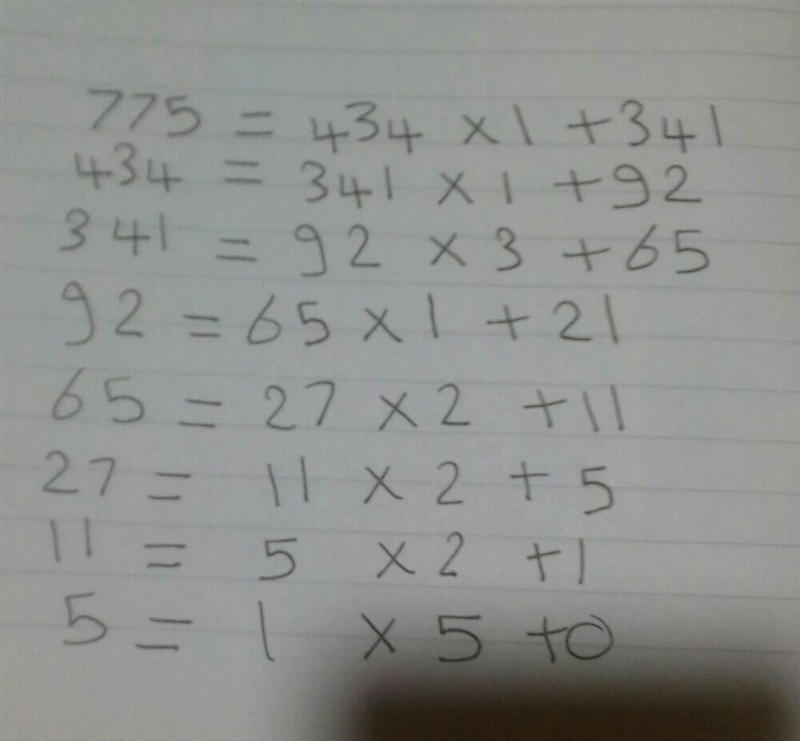 775 = 434 × 1 + 341
434 = 341 × 1 + 92
341 = 92 × 3 + 65
92 = 65 × 1 + 21
65 = 27 × 2 + 11
27 = 11 × 2 + 5
11 = 5 × 2 + 1
5 = 1 × 5 + 0